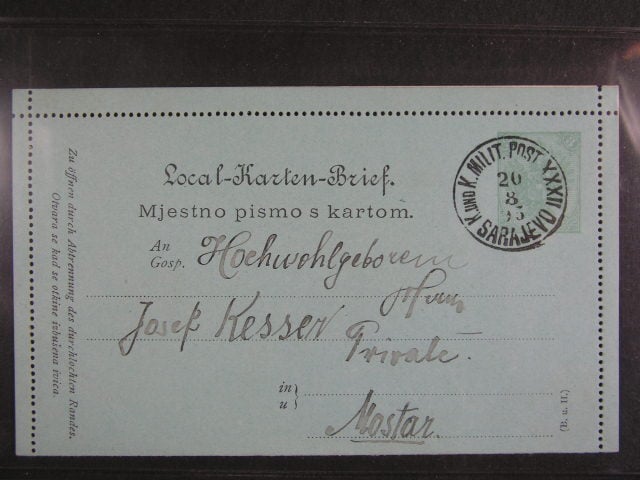 Local-Karten-Brief.
Mjestno pismo s kartom.
K UND K. MILIT. POST XXXII
20
8
SARAJEVO
An
Gosp.
Hochwohlgeborem
Herrn
Josef Kesser Private.
in
u
Mostar.
(B. u. H.)
Zu öffnen durch Abtrennung des durchlochten Randes.
Otvara se kad se otkine izbušena ivica.